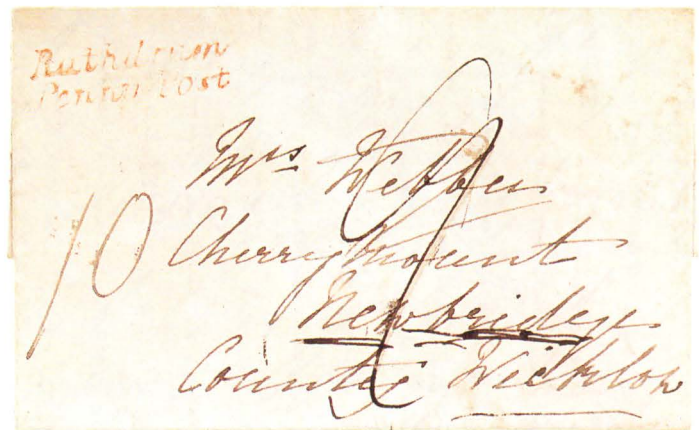 Rathdrum
Penny Post
Mrs Webber
10
Cherrymount
Newbridge
County Wicklow